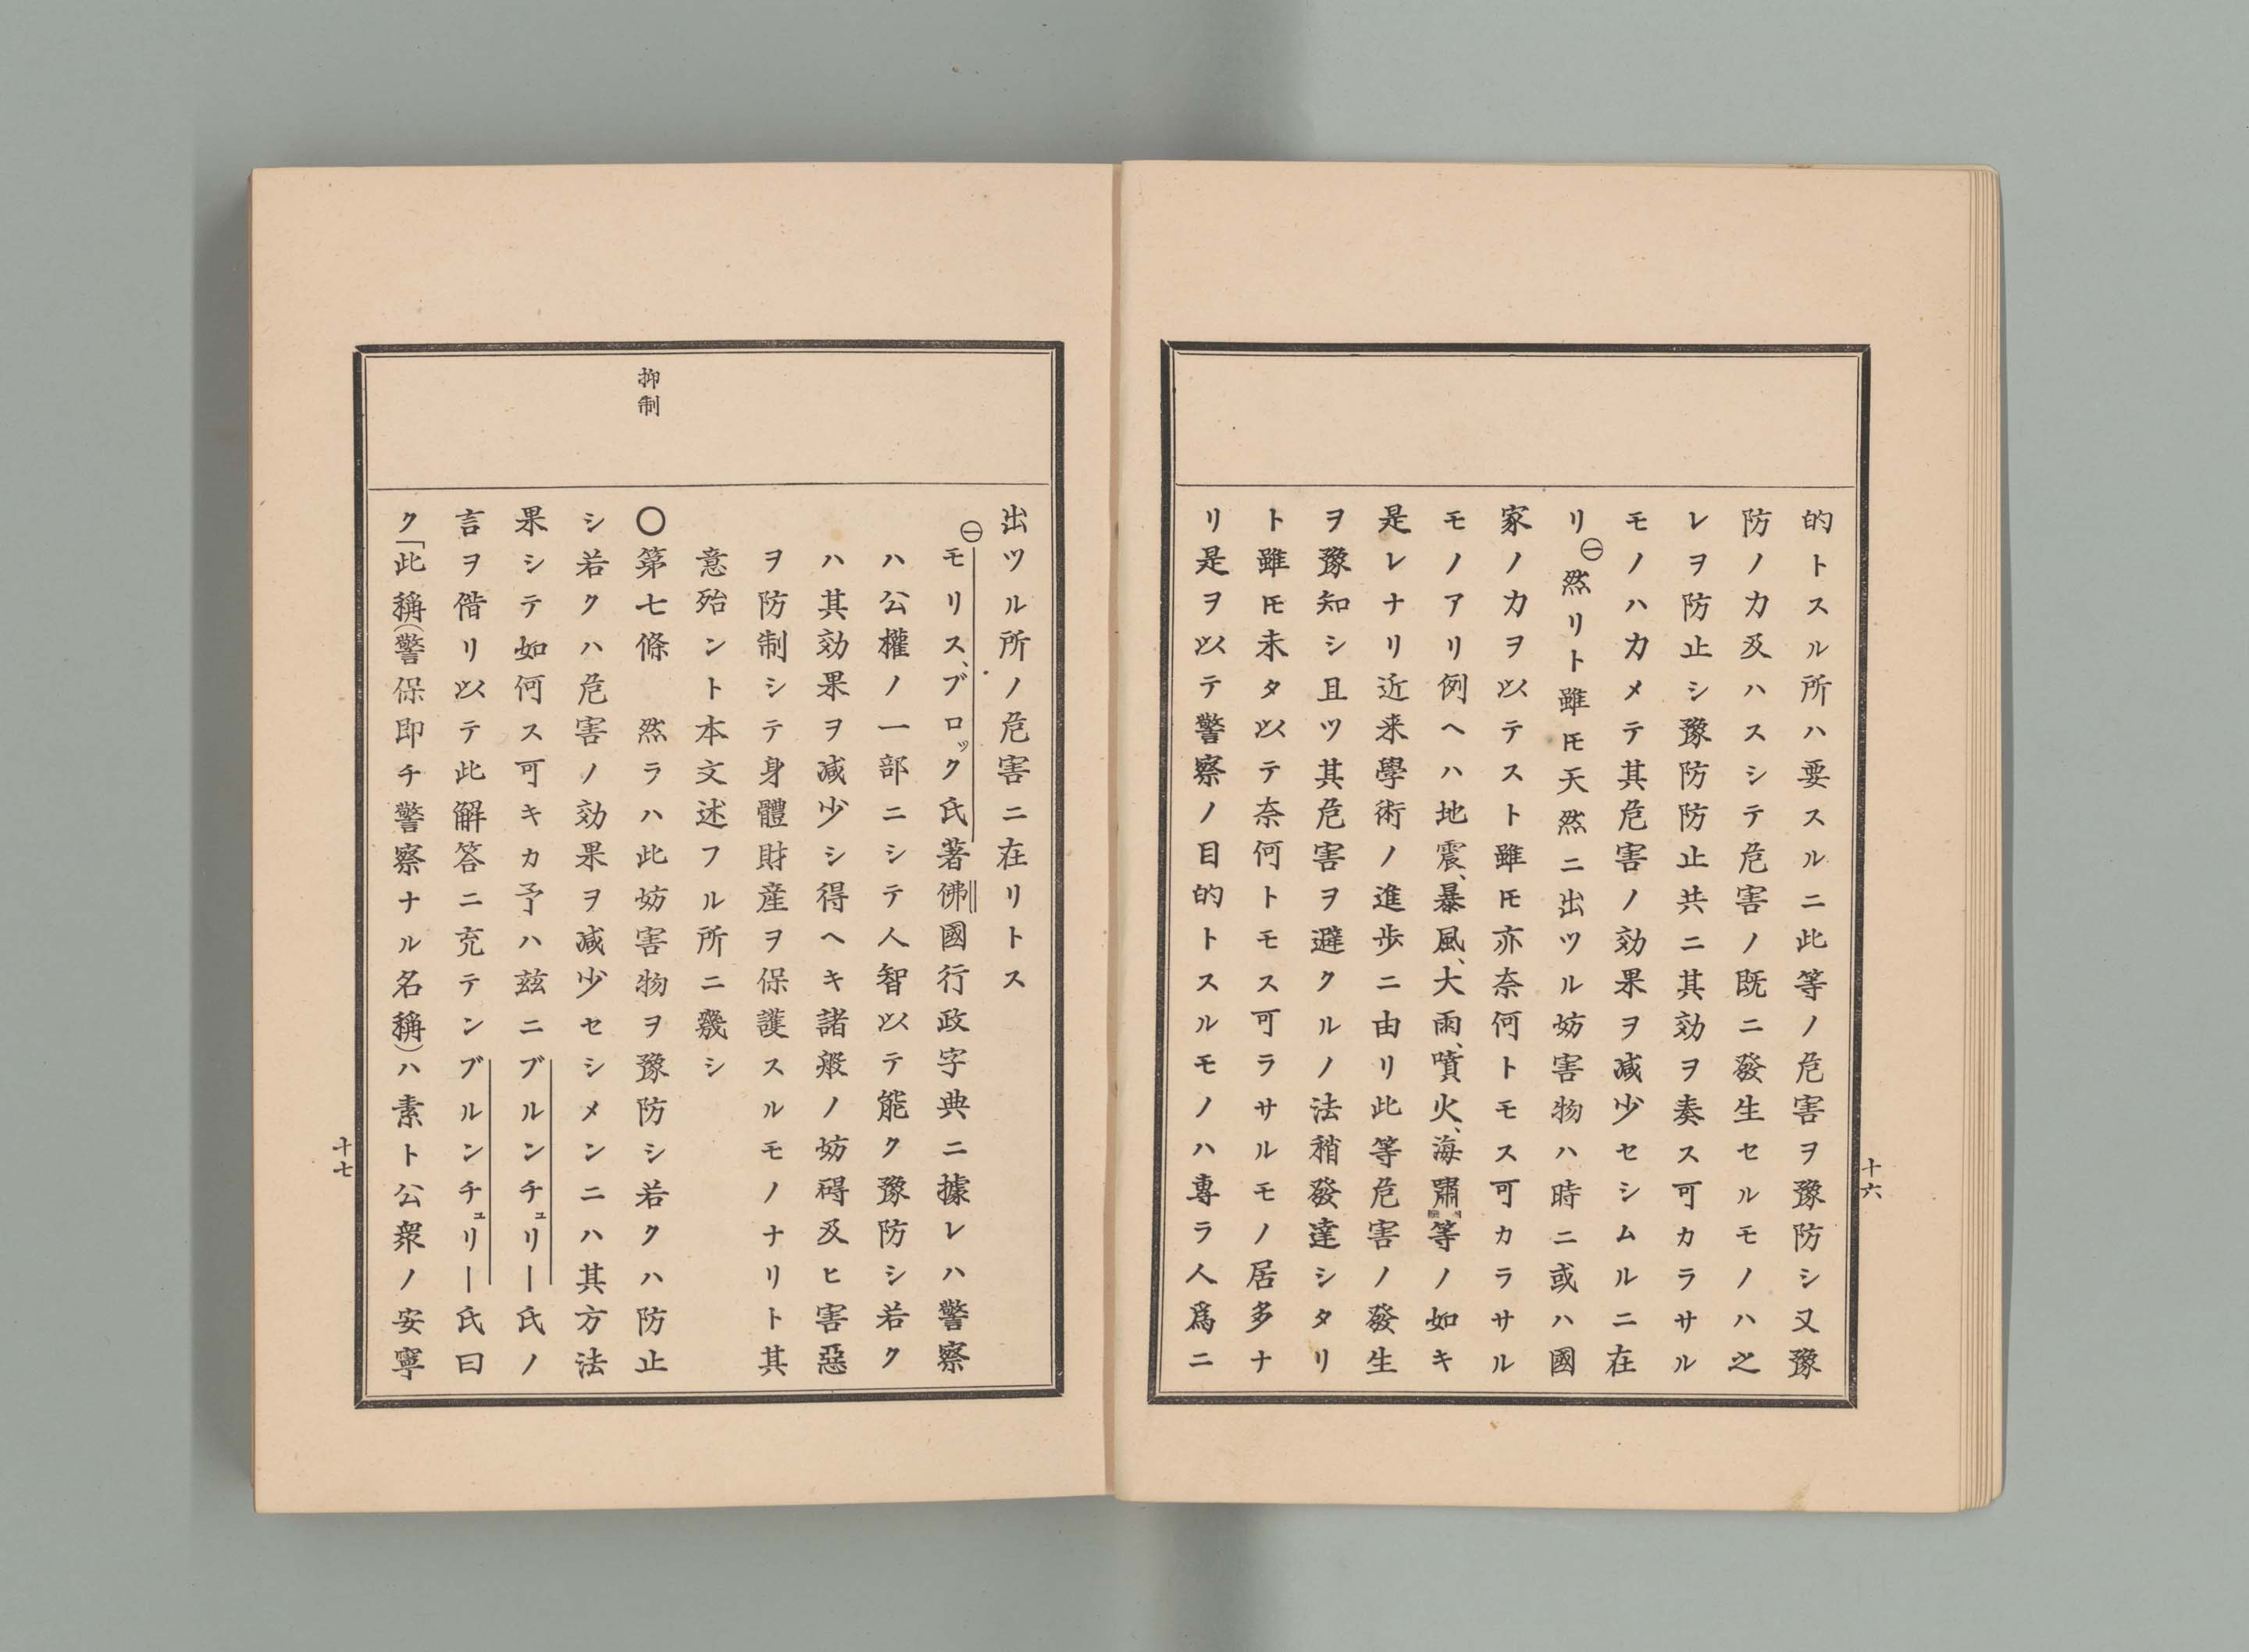 的トスル所ハ要スルニ此等ノ危害ヲ豫防シ又豫
防ノ力及ハスシテ危害ノ既ニ發生セルモノハ之
レヲ防止シ豫防防止共ニ其効ヲ奏ス可カラサル
モノハ力メテ其危害ノ効果ヲ减少セシムルニ在
リ㊀然リト雖𪜈天然ニ出ツル妨害物ハ時ニ或ハ國
家ノ力ヲ以テスト雖𪜈亦奈何トモス可カラサル
モノアリ例ヘハ地震、暴風、大雨、噴火、海嘯等ノ如キ
是レナリ近来學術ノ進歩ニ由リ此等危害ノ發生
ヲ豫知シ且ツ其危害ヲ避クルノ法稍發達シタリ
ト雖𪜈未タ以テ奈何トモス可ラサルモノ居多ナ
リ是ヲ以テ警察ノ目的トスルモノハ專ラ人爲ニ
十六
出ツル所ノ危害ニ在リトス
㊀モリス、ブロック氏著佛國行政字典ニ據レハ警察
ハ公權ノ一部ニシテ人智以テ能ク豫防シ若ク
ハ其効果ヲ减少シ得ヘキ諸般ノ妨碍及ヒ害惡
ヲ防制シテ身體財産ヲ保護スルモノナリト其
意殆ント本文述フル所ニ幾シ
抑制
〇第七條 然ラハ此妨害物ヲ豫防シ若クハ防止
シ若クハ危害ノ効果ヲ减少セシメンニハ其方法
果シテ如何ス可キカ予ハ茲ニブルンチュリー氏ノ
言ヲ偕リ以テ此解答ニ充テンブルンチュリー氏曰
ク「此稱(警保即チ警察ナル名稱)ハ素ト公衆ノ安寧
十七